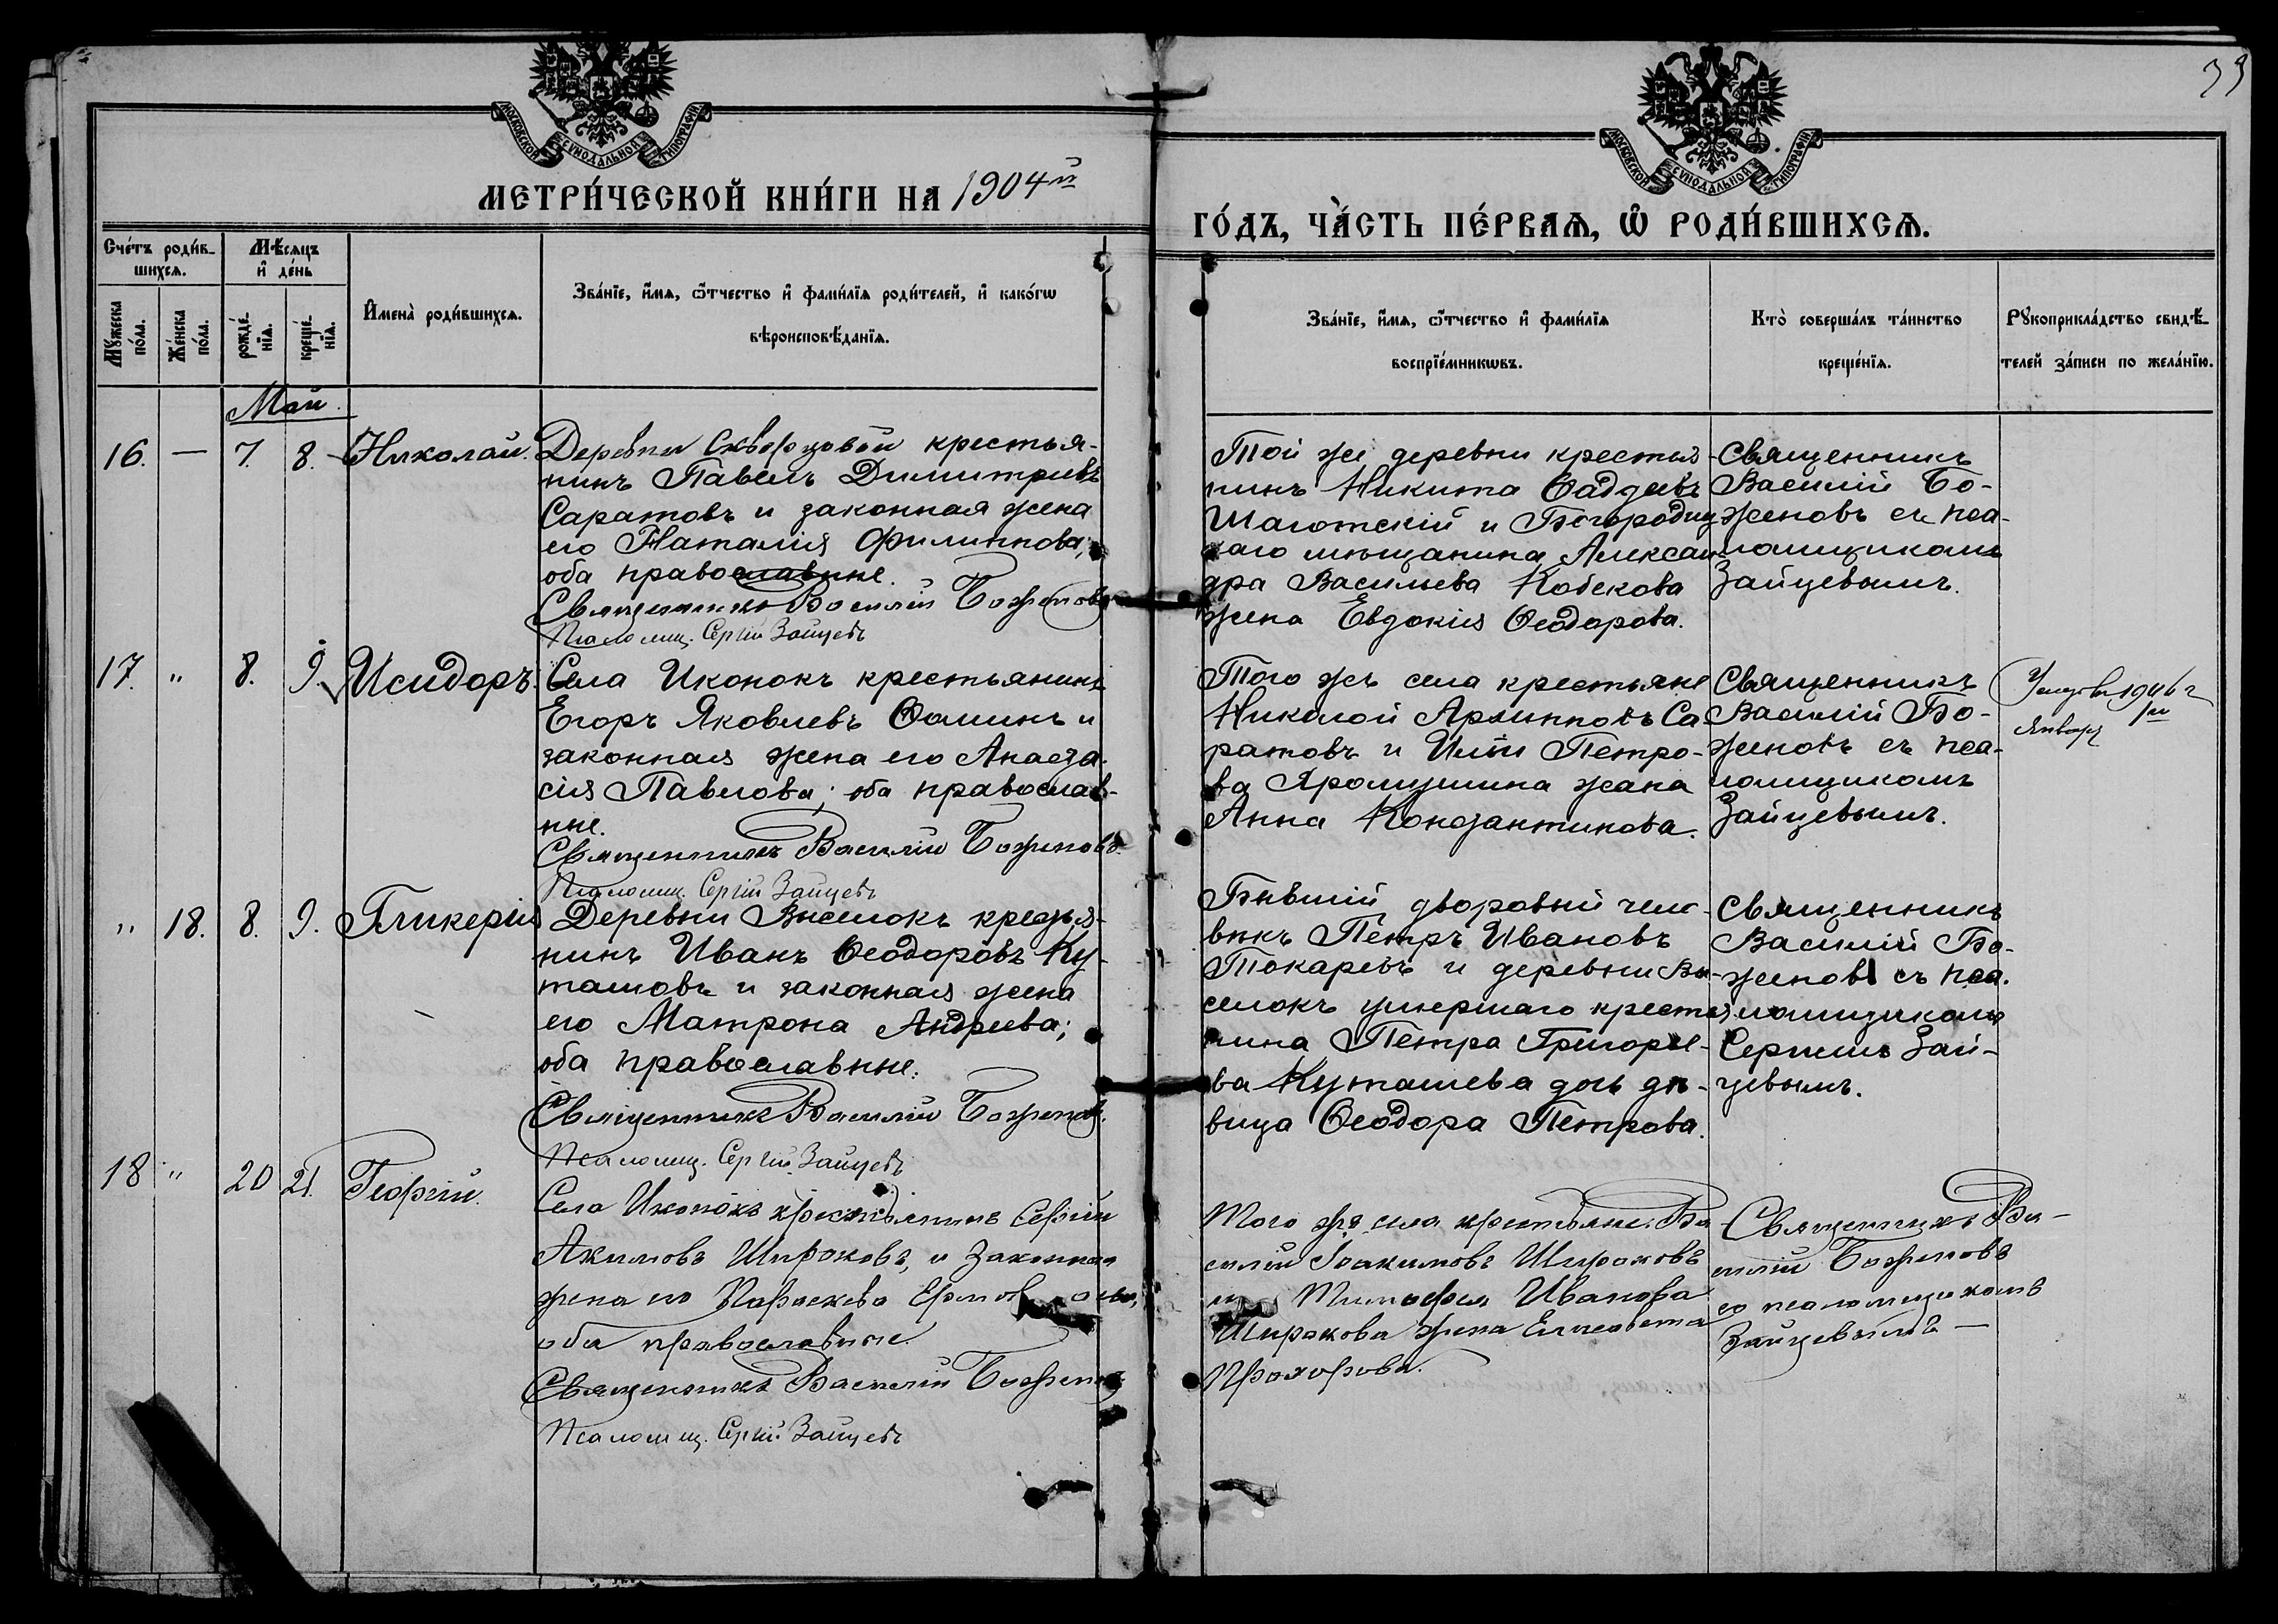 39
МОСКОВСКОЙ СѴНОДАЛЬНОЙ ТИПОГРАФІИ
МОСКОВСКОЙ СѴНОДАЛЬНОЙ ТИПОГРАФІИ
МЕТРИ́ЧЕСКОЙ КНИ́ГИ НА 1904й
ГО́ДЪ, ЧА́СТЬ ПЕ́РВАѦ, Ѡ РОДИ́ВШИХСѦ.
Сче́тъ роди́в-
шихсѧ.
Мꙋ́жеска
по́ла.
Же́нска
по́ла.
Мѣ́сѧцъ
и҆ де́нь
рожде́-
нїѧ.
креще́-
нїѧ.
И҆мена̀ роди́вшихсѧ.
Зва́нїе, и҆́мѧ, ѻ҆́тчество и҆ фами́лїѧ роди́телей, и҆ како́гѡ
вѣроисповѣ́данїѧ.
Зва́нїе, и҆́мѧ, ѻ҆́тчество и҆ фами́лїѧ
воспрїе́мникѡвъ.
Кто̀ соверша́лъ та́инство
креще́нїѧ.
Рꙋкоприкла́дство свидѣ́-
телей за́писи по жела́нїю.
Май
16. — 7. 8. Николай.
Деревни Скверцовой крестья-
нинъ Павелъ Димитріевъ
Саратовъ и законная жена
его Наталія Филиппова;
оба православные.
Священникъ Василій Боженовъ
Псаломщ. Сергій Зайцевъ
Той же деревни крестья-
нинъ Никита Ѳаддеевъ
Шаготскій и Богородиц
каго мѣщанина Алексан
дра Васильева Кобекова
жена Евдокія Ѳеодорова.
Священникъ
Василій Бо-
женовъ съ пса-
ломщикомъ
Зайцевымъ.
17. " 8. 9. Исидоръ.
Села Иконокъ крестьянинъ
Егоръ Яковлевъ Ѳоминъ и
законная жена его Анаста-
сія Павлова; оба православ-
ные.
Священникъ Василій Боженовъ.
Псаломщ. Сергій Зайцевъ
Того жъ села крестьяне
Николай Архипповъ Са
ратовъ и Иліи Петро-
ва Яромушина жена
Анна Константинова.
Священникъ
Василій Бо-
женовъ съ пса-
ломщикомъ
Зайцевымъ.
1946 г
Январ
" 18. 8. 9. Гликерія
Деревни Выселокъ крестья-
нинъ Иванъ Ѳеодоровъ Ку-
ташовъ и законная жена
его Матрона Андреева;
оба православные.
Священникъ Василій Боженовъ.
Псаломщ. Сергій Зайцевъ
Бывшій дворовый чело-
вѣкъ Петръ Ивановъ
Токаревъ и деревни Вы-
селокъ умершаго крестья
нина Петра Григорье-
ва Куташева дочь дѣ-
вица Ѳеодора Петрова.
Священникъ
Василій Бо-
женовъ съ пса-
ломщикомъ
Сергіемъ Зай-
цевымъ.
18 " 20 21. Георгій.
Села Иконокъ крестьянинъ Сергій
Акимовъ Широковъ, и законная
жена его Параскева
оба православные.
Священникъ Василій Боженовъ
Псаломщ. Сергій Зайцевъ
Того же села крестьяне: Ва
силій Іоакимовъ Широковъ
и Тимофея Иванова
Широкова жена Елисавета
Прохорова.
Священникъ Ва-
силій Боженовъ
со псаломщикомъ
Зайцевымъ —